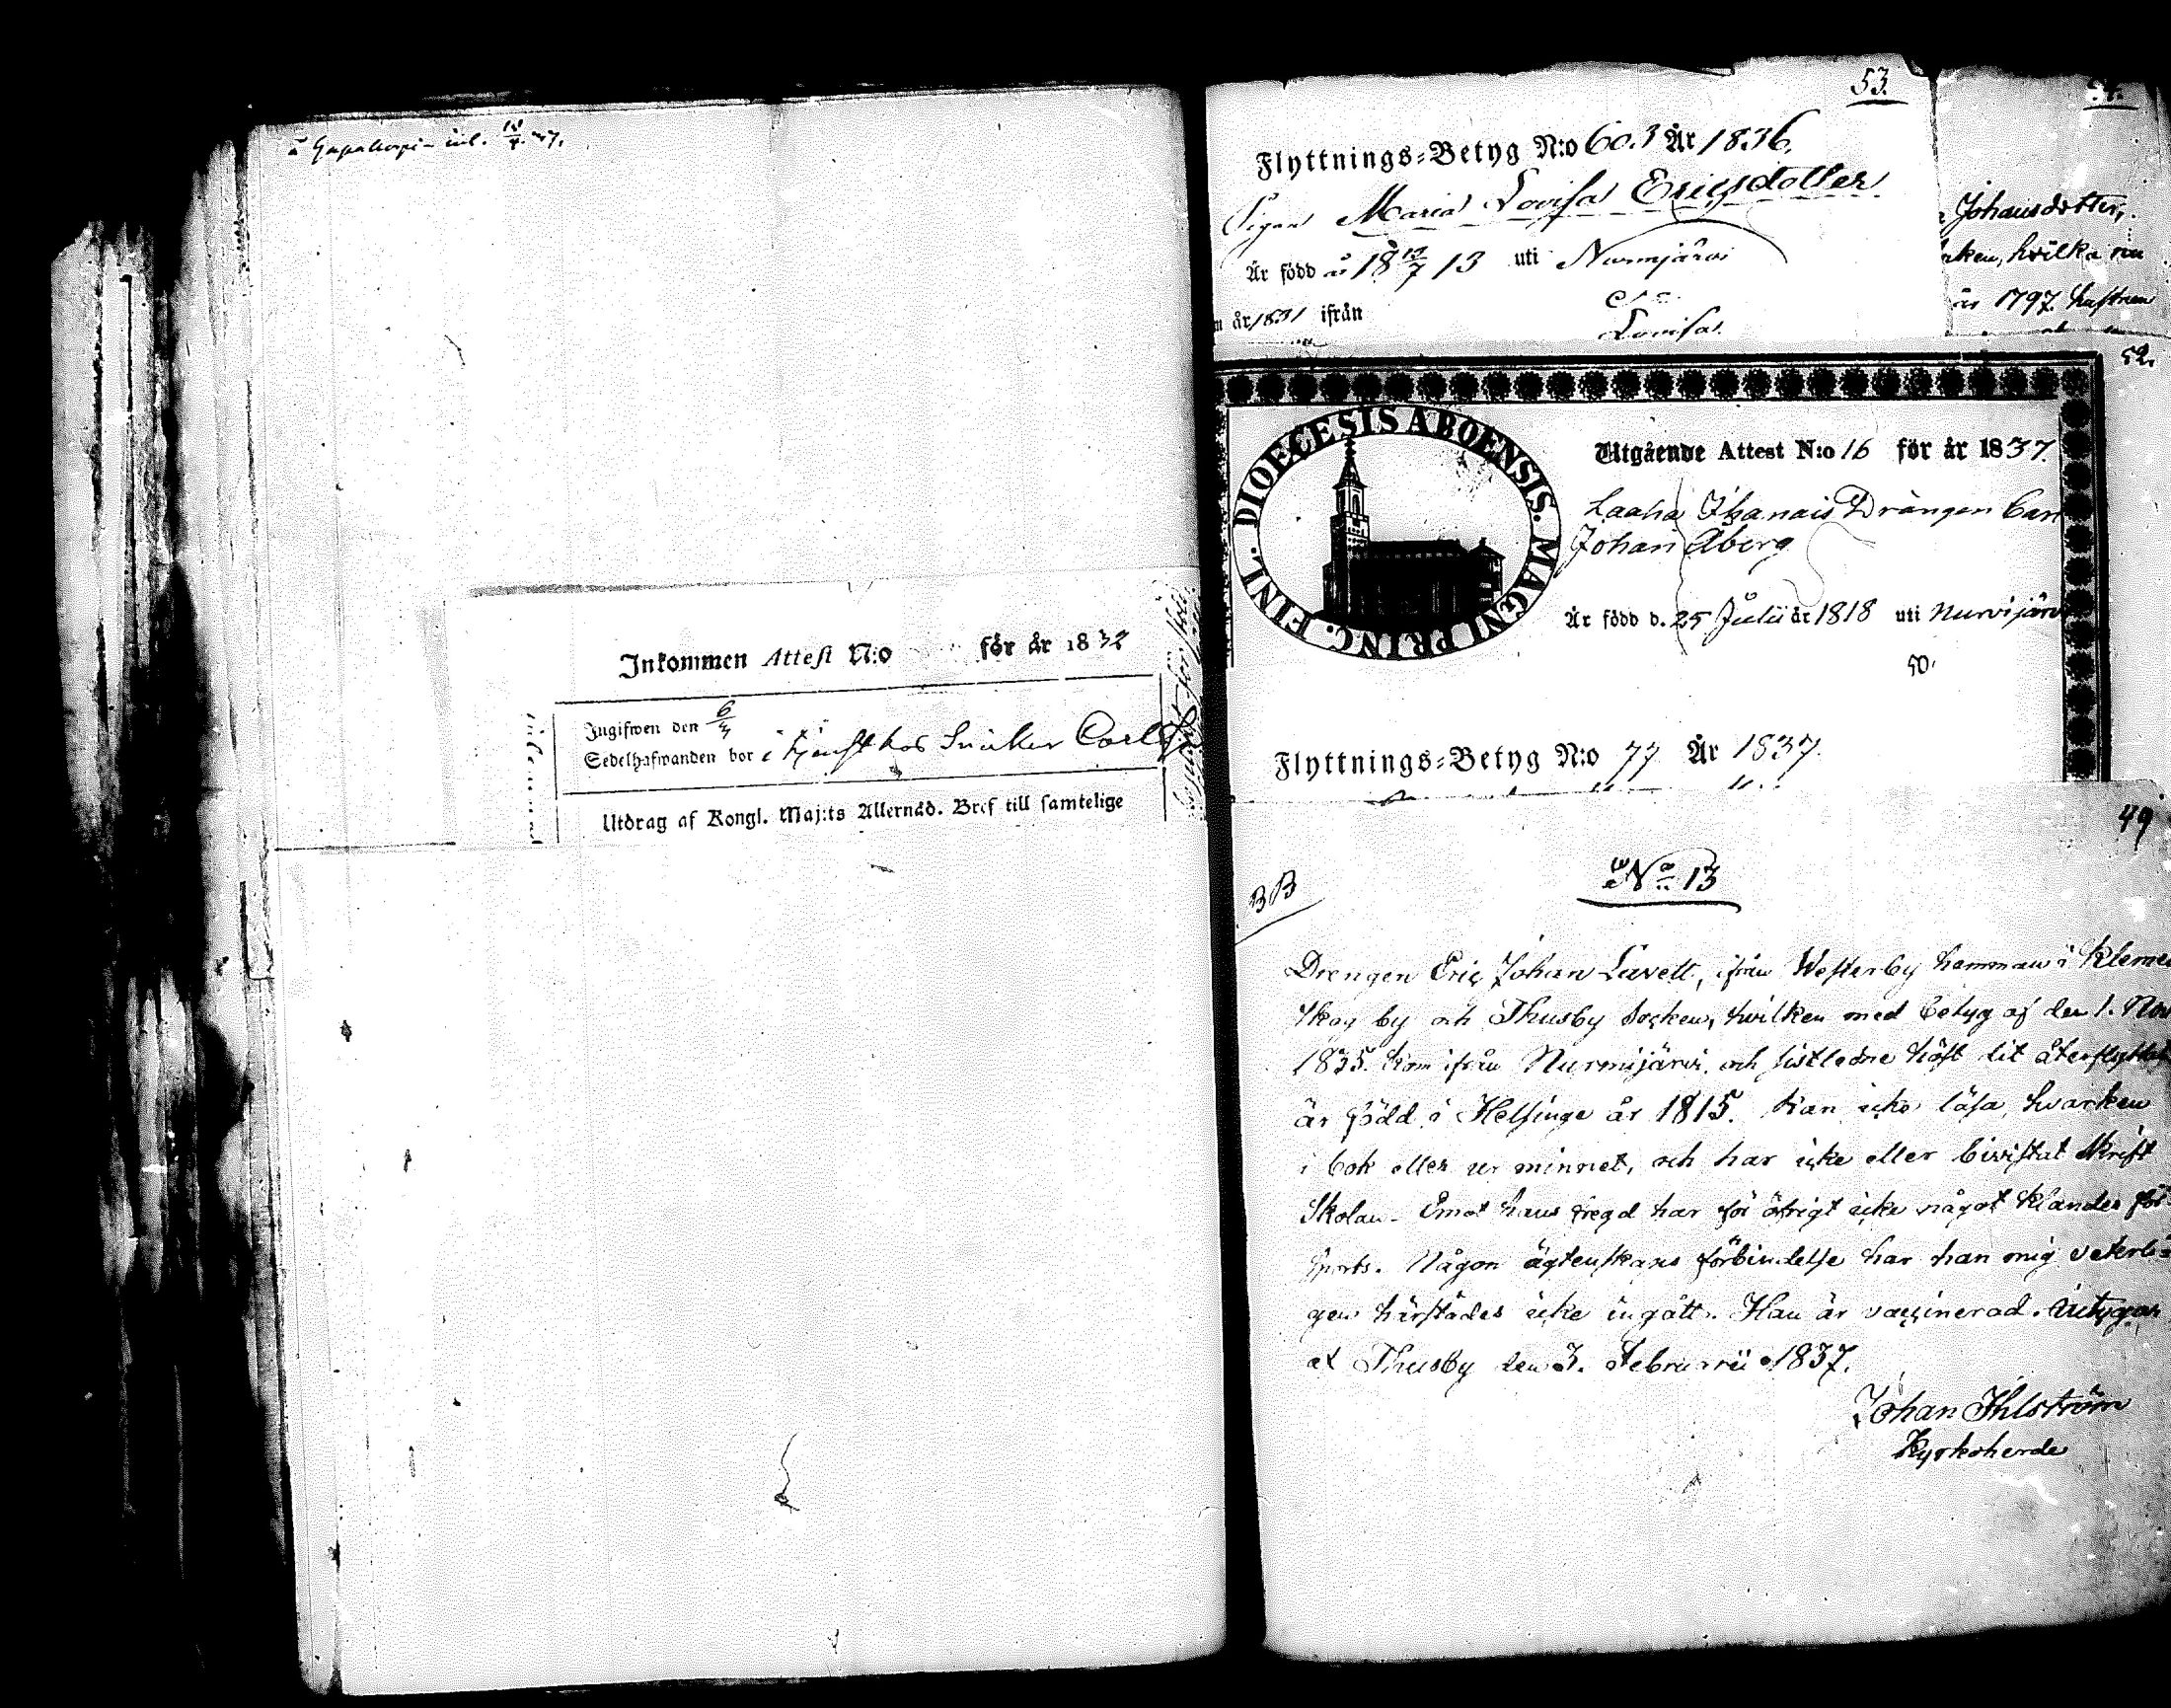 inl. 10/4 37.
Inkommen Attest N:o för år 1832
Ingifwen den 6/4
Sedelhafwanden bor i tjenst hos Snikar Carl
Utdrag af Kongl. Maj:ts Allernåd. Bref till samtelige
53.
Flyttnings-Betyg N:o 603 År 1836.
Pigan Maria Lovisa Ericsdotter
Är född år 18 12/7 13 uti Nurmjärvi
år 1831 ifrån
Lovisa.
Johansdotter,
hvilka nu
år 1797. hustrun
52.
DIOECESIS ABOENSIS. MAGNI PRINC. FINL.
Utgående Attest N:o 16 för år 1837.
Drängen Carl
Johan Åberg
Är född d. 25 Julii år 1818 uti Nurvijärvi
50.
Flyttnings-Betyg N:o 77 År 1837.
49
No 13
BB
Drengen Eric Johan Lavett, ifrån Westerby hemman i Kleme
skog by och Thusby Socken, hvilken med betyg af den 1. Nov
1835. kom ifrån Nurmijärvi, och sistledne höst dit återflyttat,
är född i Helsinge år 1815. Kan icke läsa, hvarken
i bok eller ur minnet, och har icke eller bivistat Skrift
Skolan. Emot hans fregd har för öfrigt icke något klander för
sports. Någon ägtenskaps förbindelse har han mig veterli
gen härstädes icke ingått. Han är vaccinerad. Intygar
at Thusby den 3. Februarii 1837.
Johan Ihlström
Kyrkoherde